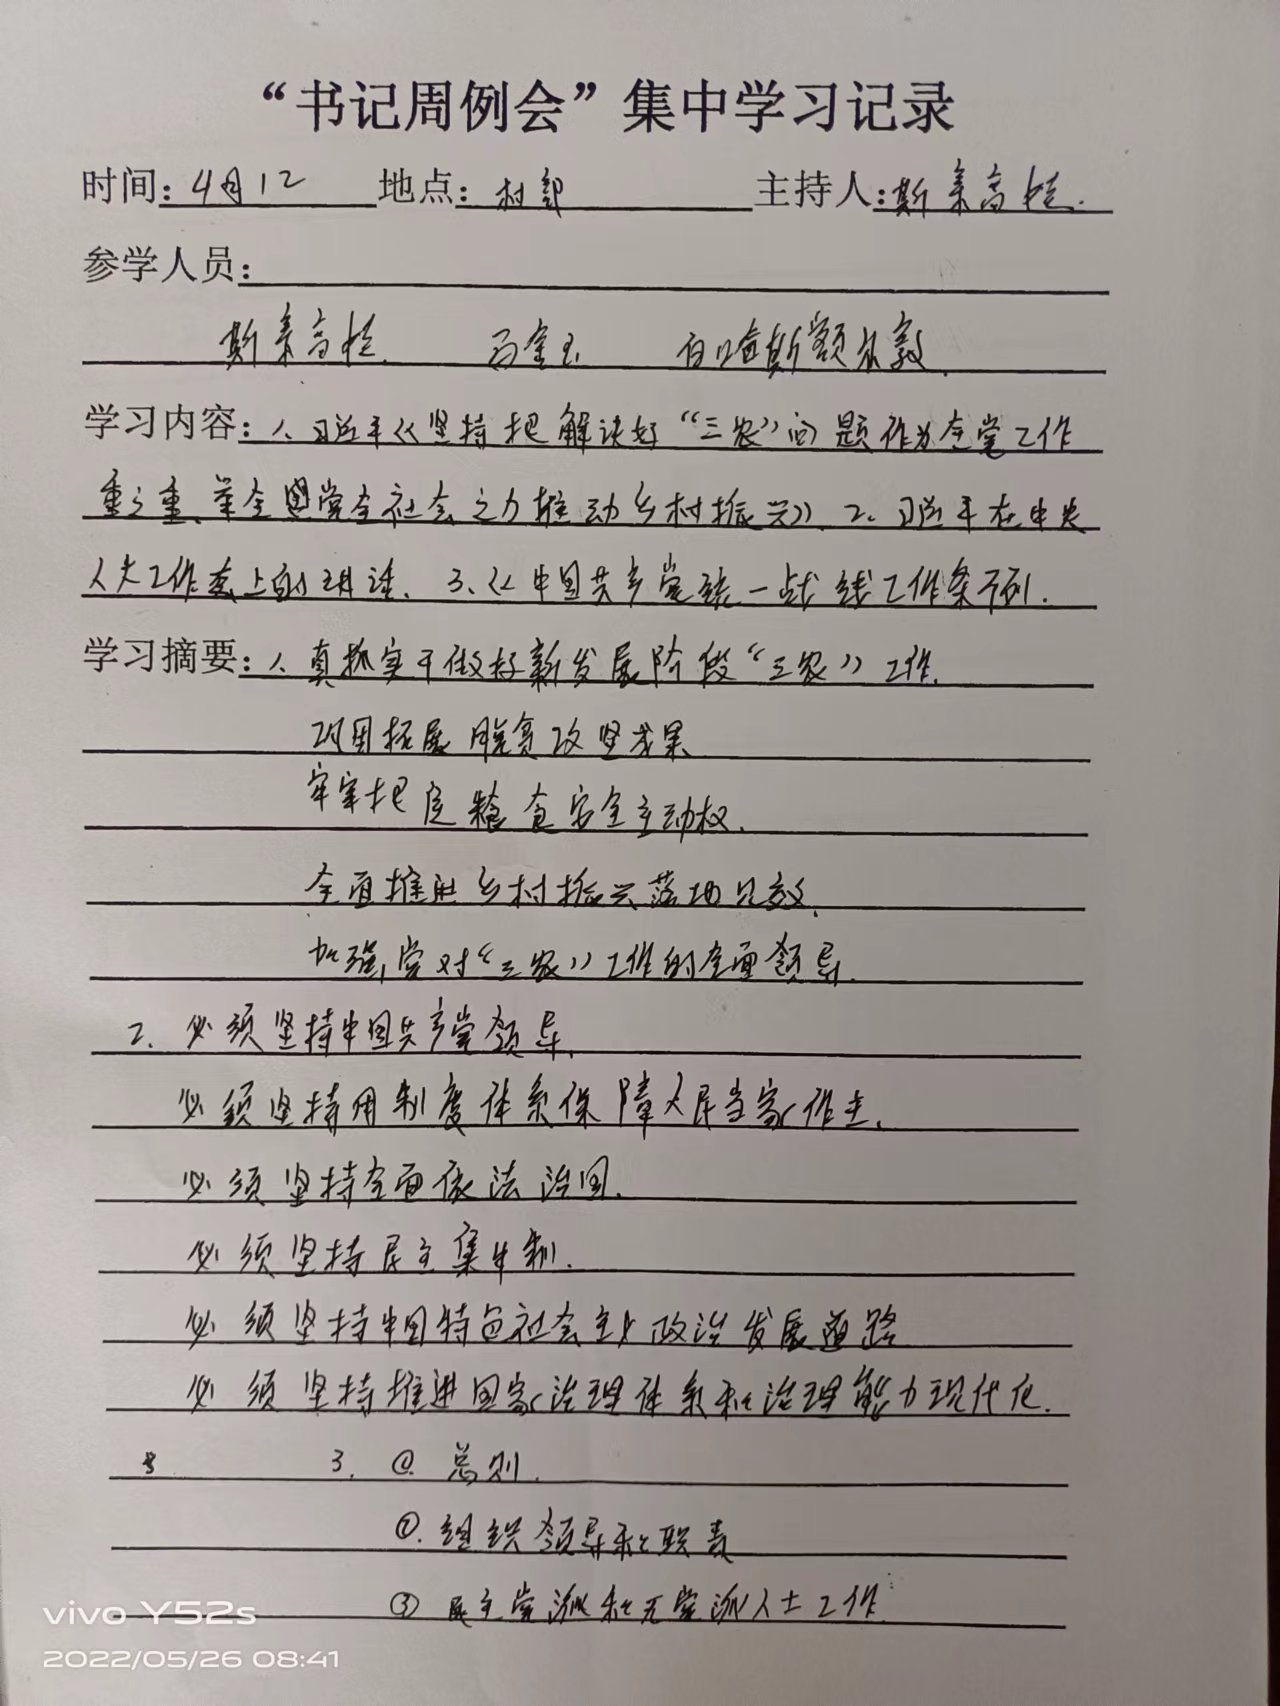 “书记周例会”集中学习记录
时间：4月12 地点：村部 主持人：斯高娃.
参学人员：
斯高娃. 白哈斯额尔敦.
学习内容：1、习近平《坚持把解决好“三农”问题作为全党工作
重之重、举全党全社会之力推动乡村振兴》、2、习近平在中央
人大工作会上的讲话、3、《中国共产党统一战线工作条例.
学习摘要：1、真抓实干做好新发展阶段“三农”工作.
巩固拓展脱贫攻坚成果
牢牢把住粮食安全主动权.
全面推进乡村振兴落地见效.
加强党对“三农”工作的全面领导.
2. 必须坚持中国共产党领导.
必须坚持用制度体系保障人民当家作主.
必须坚持全面依法治国.
必须坚持民主集中制.
必须坚持中国特色社会主义政治发展道路
必须坚持推进国家治理体系和治理能力现代化.
3. ①. 总则.
②. 组织领导和职责
③ 民主党派和无党派人士工作
vivo Y52s
2022/05/26 08:41